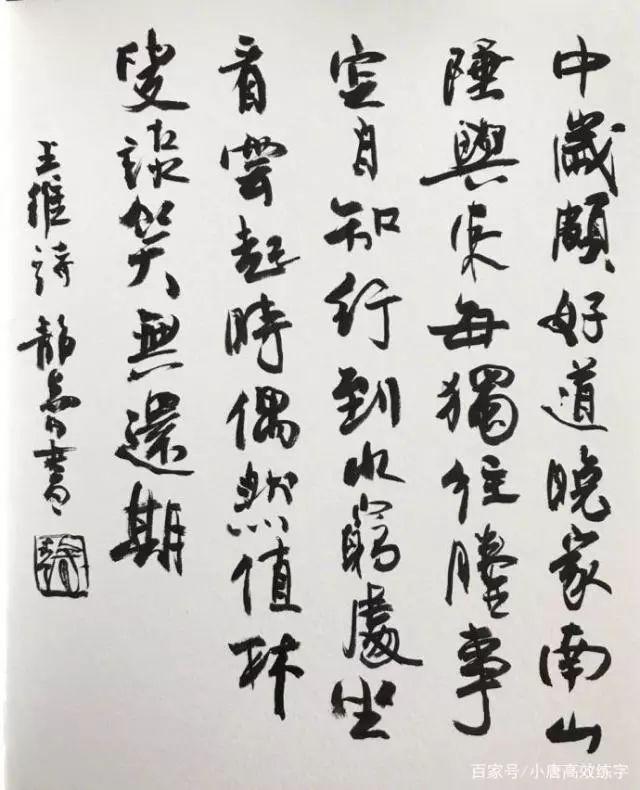 中歲頗好道晚家南山
陲興來每獨往勝事
空自知行到水窮處坐
看雲起時偶然值林
叟談笑無還期
王維詩 書
百家号/小唐高效练字